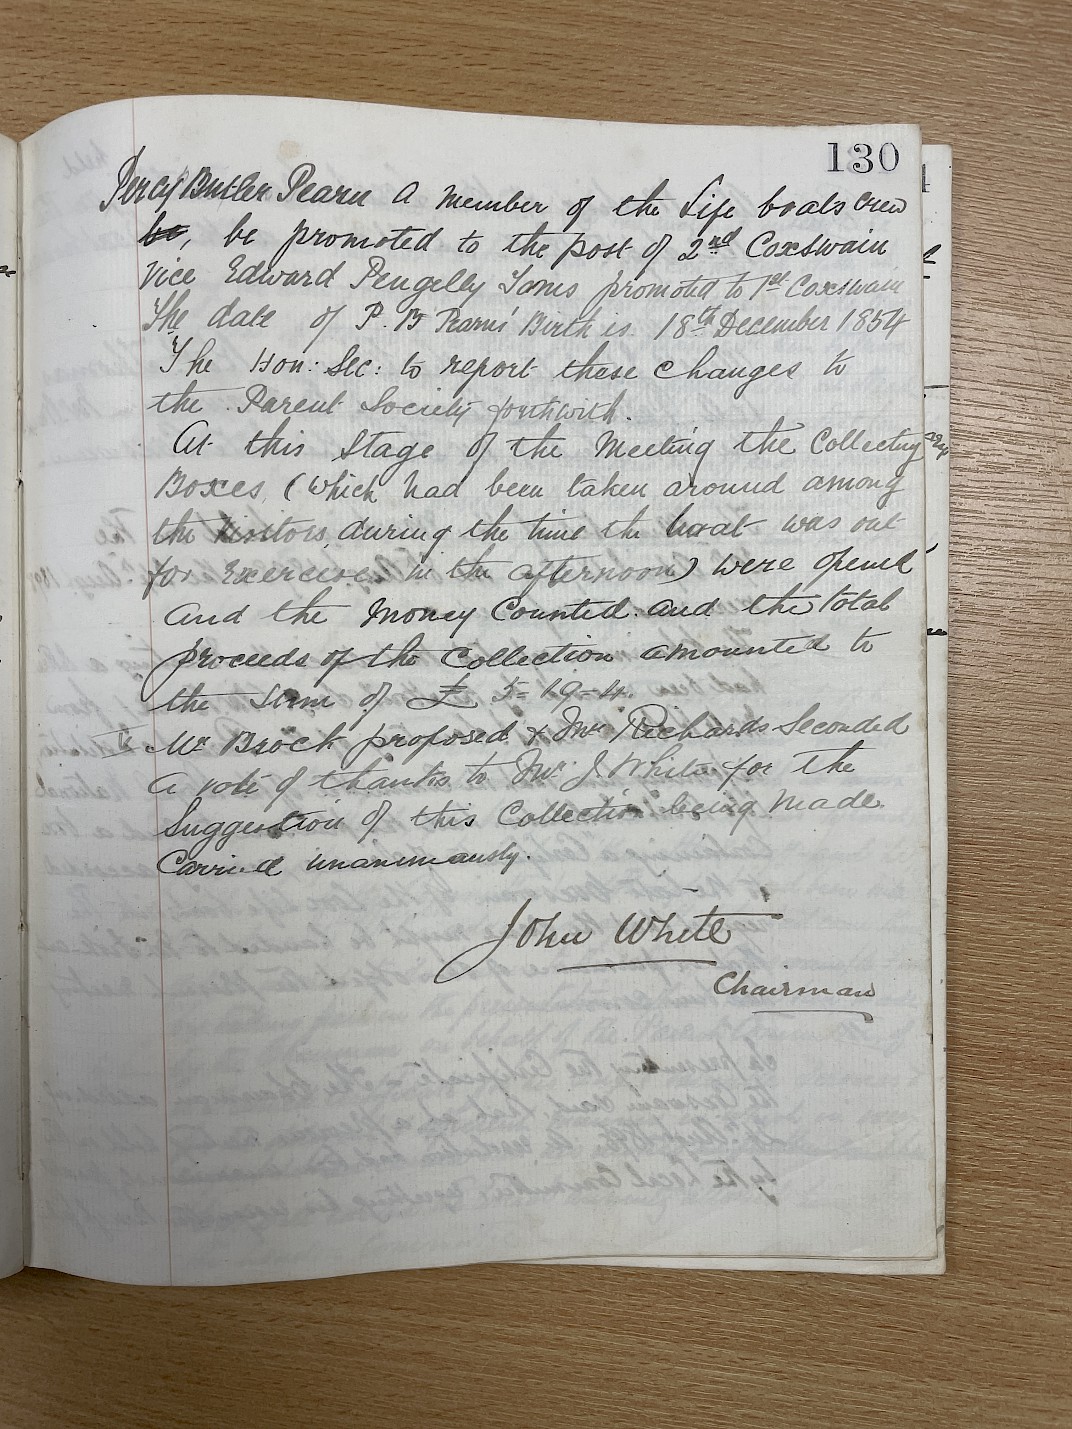 130
Percy Butler Pearn a member of the Life boats crew
be, be promoted to the post of 2nd Coxswain
vice Edward Pengelly Toms promoted to 1st Coxswain
The date of P. B Pearns' Birth is 18th December 1854
The Hon: Sec: to report these changes to
the Parent Society forthwith.
At this Stage of the Meeting the Collecting
Boxes, (which had been taken around among
the Visitors, during the time the boat was out
for Exercise, in the afternoon) were opened
and the Money Counted. and the total
proceeds of the Collection amounted to
the sum of £ 5-19-4.
Mr Brock proposed & Mr Richards Seconded
a vote of thanks to Mr J White for the
Suggestion of this Collection being Made.
Carried unanimously.
John White
Chairman